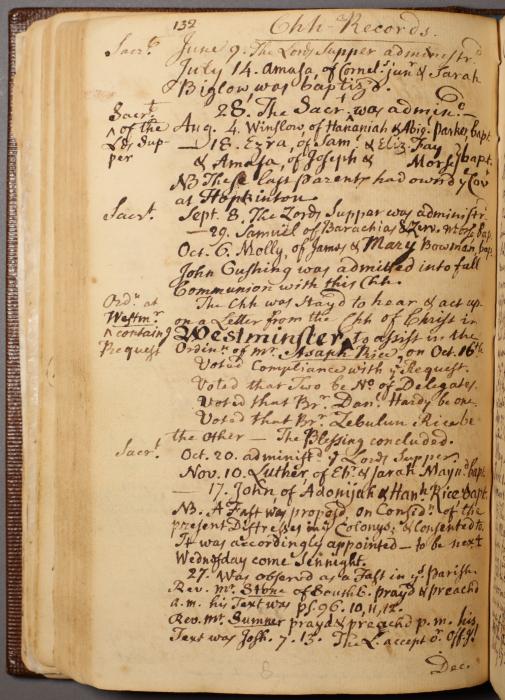 132 Chh Records.
Sacrt. June 9. The Lords Supper administrd
July 14. Amasa, of Cornels junr & Sarah
Biglow, was baptizd.
28. The Sacrt. was admind.
Sacrt.
^ of the
Lds Sup-
per
Aug. 4. Winslow, of Hananiah & Abig. Parker, bapt
— 18. Ezra, of Sam. & Eliz. Fay
& Amasa, of Joseph & Morse, bapt.
NB These last Parents had ownd ye Cov
at Hopkinton
Sacrt. Sept. 8. The Lords Supper was administr.
— 29. Samuel of Barachias &
Oct. 6. Molly, of James & Mary Bowman, bap.
John Cushing was admitted into full
Communion with this Chh.
Ordn. at
Westmr.
^ containg
Request
The Chh was stayd to hear & act up-
on a Letter from the Chh of Christ in
Westminster, to assist in the
Ordinn. of mr. Asaph Rice, on Oct. 16th
Voted Compliance with ye Request.
Voted that Two be No. of Delegates.
Voted that Br. Danl. Hardy be one
Voted that Br. Zebulun Rice be
the other — The Blessing concluded.
Sacrt. Oct. 20. administd ye Lords Supper.
Nov. 10. Luther, of Ebr. & Sarah Maynd bapt
— 17. John, of Adonijah & Hanh. Rice bapt.
NB. A Fast was proposd, on Considn. of the
present Distresses in ye Colonys; & consented to.
It was accordingly appointed — to be next
Wednesday come Sennight.
27. Was observd as a Fast in ys Parish.
Revd. mr. Stone of South B. prayd & preachd
a.m. his Text was ps. 96. 10, 11, 12.
Rev. mr. Sumner prayd & preachd p.m. his
Text was Josh. 7. 13. The L. accept or. Off.gs!
8
Dec.